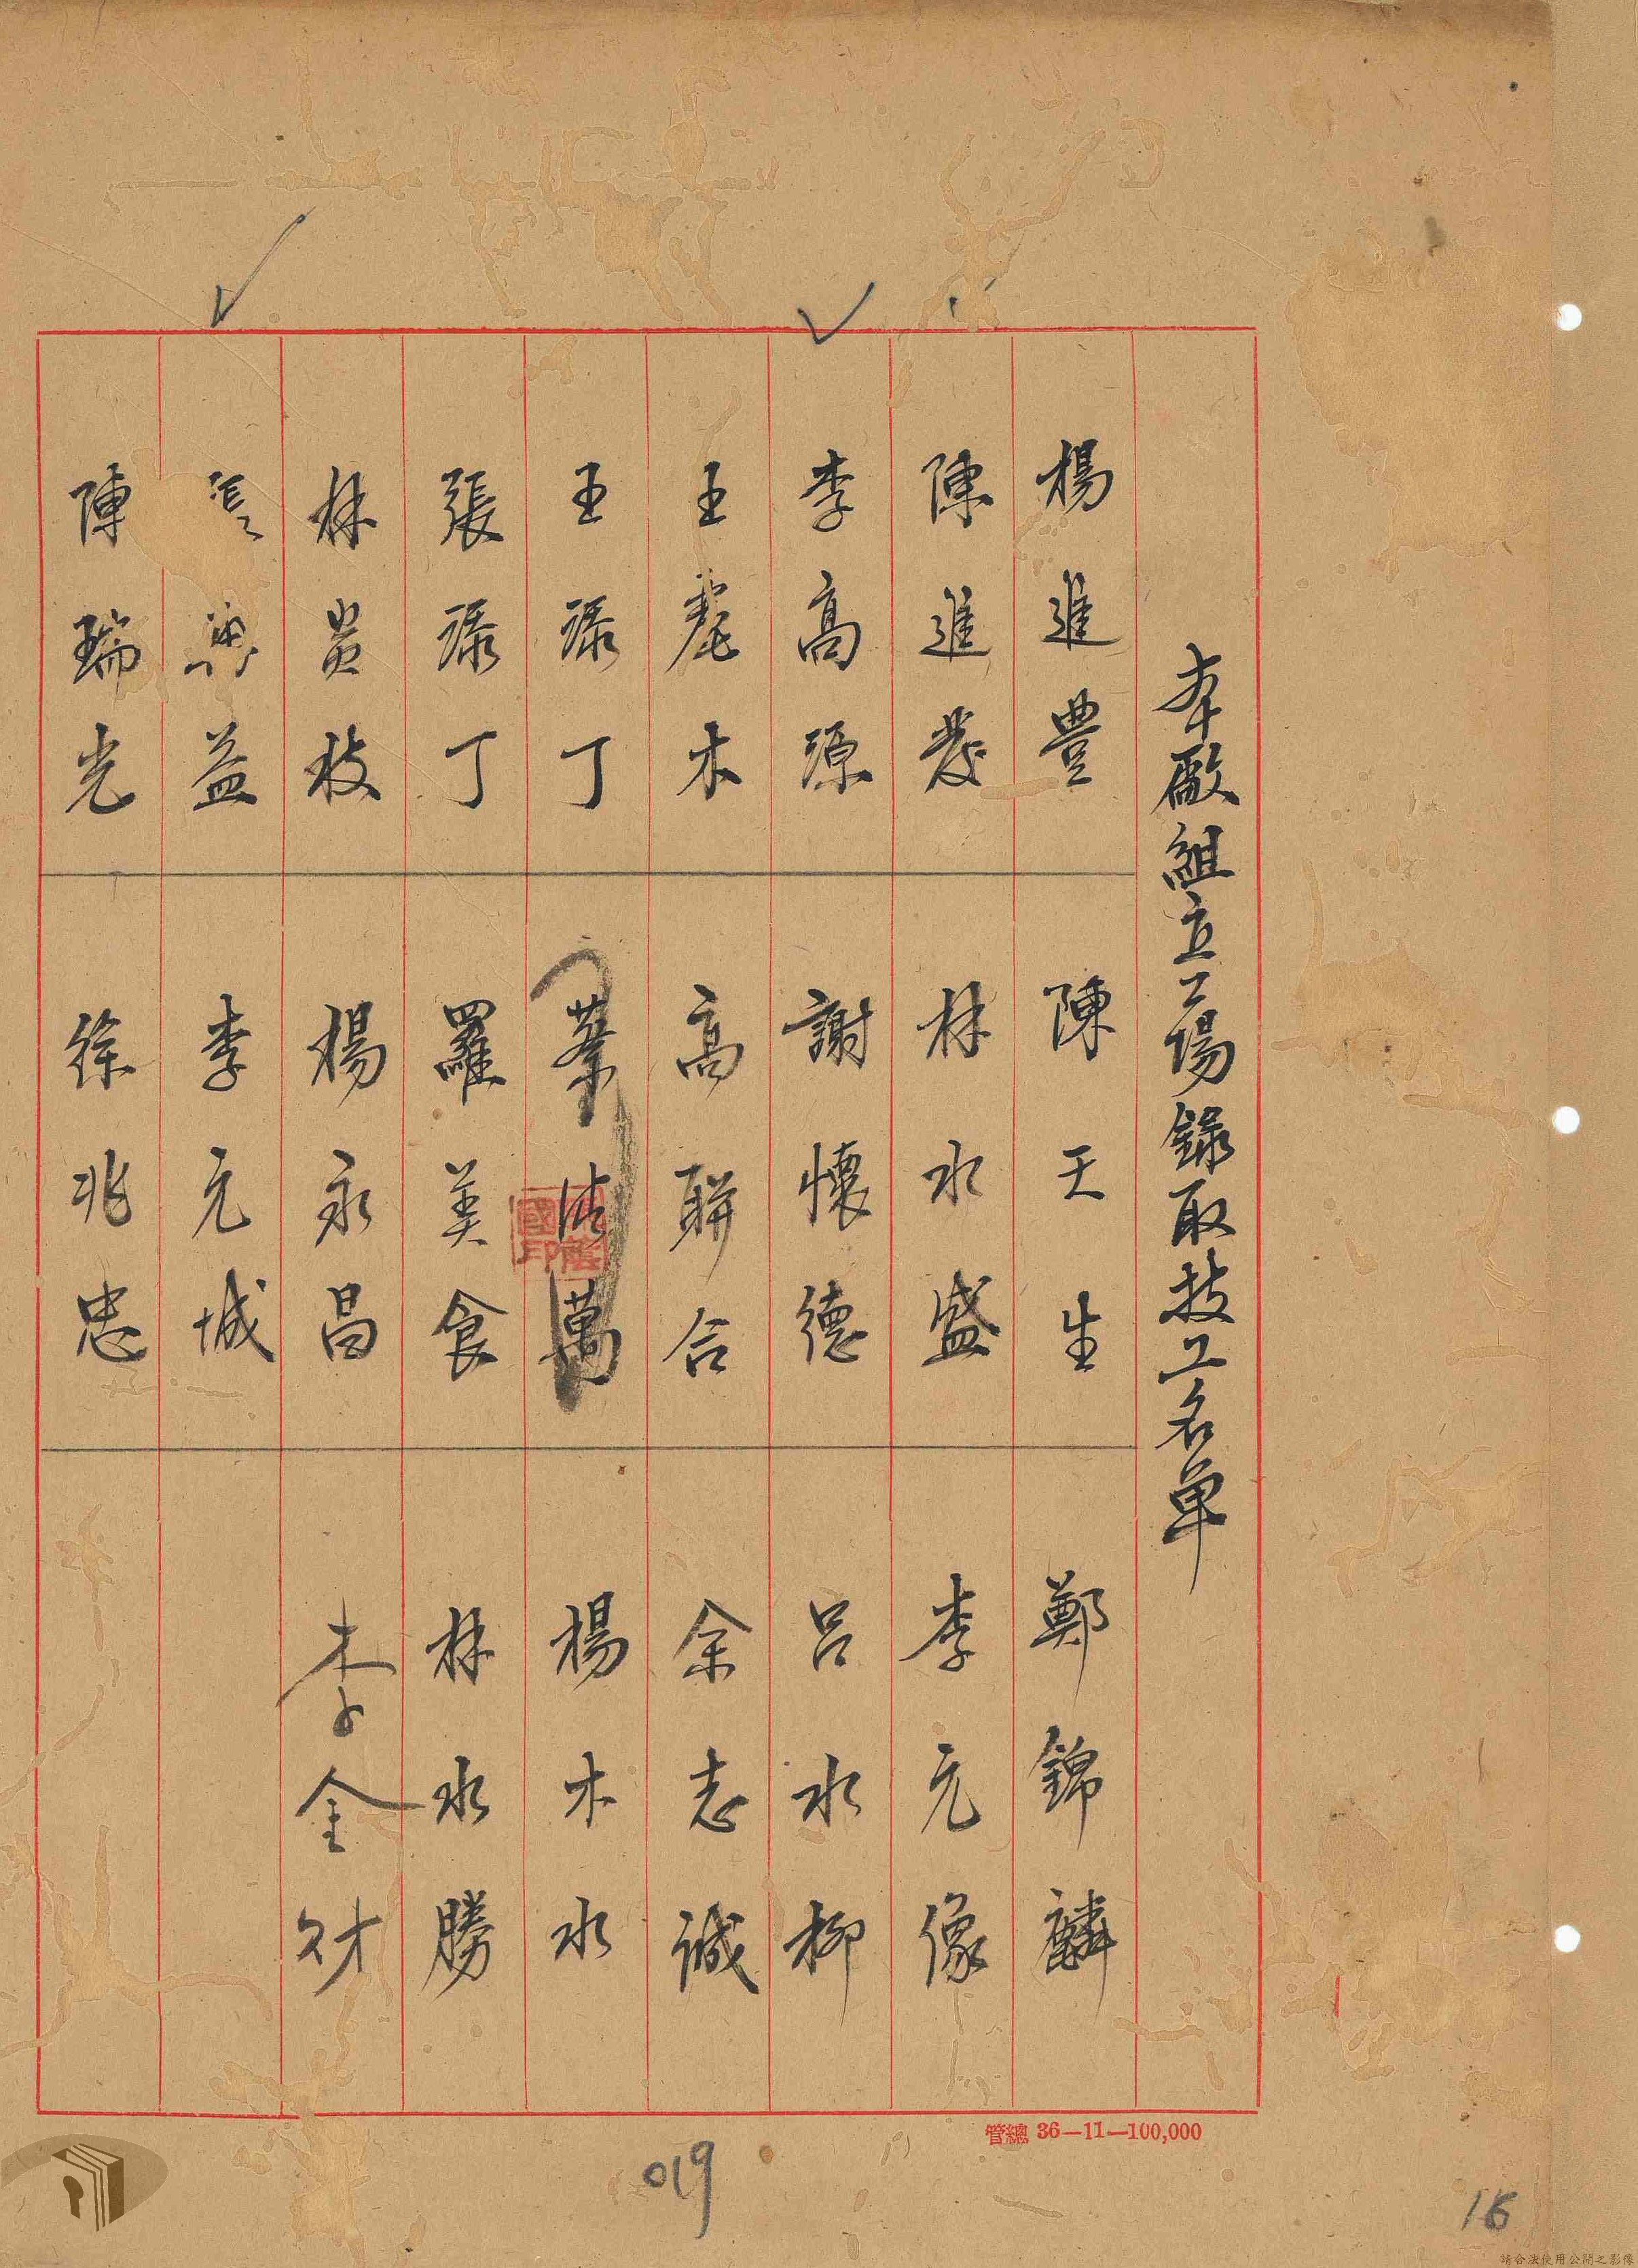 本廠組立工場錄取技工名單
楊進豐 陳天生 鄭錦麟
陳進發 林水盛 李元像
李高源 謝懷德 呂水柳
王 木 高聯合 余志誠
王添丁 萬 楊木水
張添丁 羅美食 林水勝
林貴枝 楊永昌 李金財
張 益 李元城
陳瑞光 徐兆忠
管總 36—11—100,000
019
16
請合法使用公開之影像